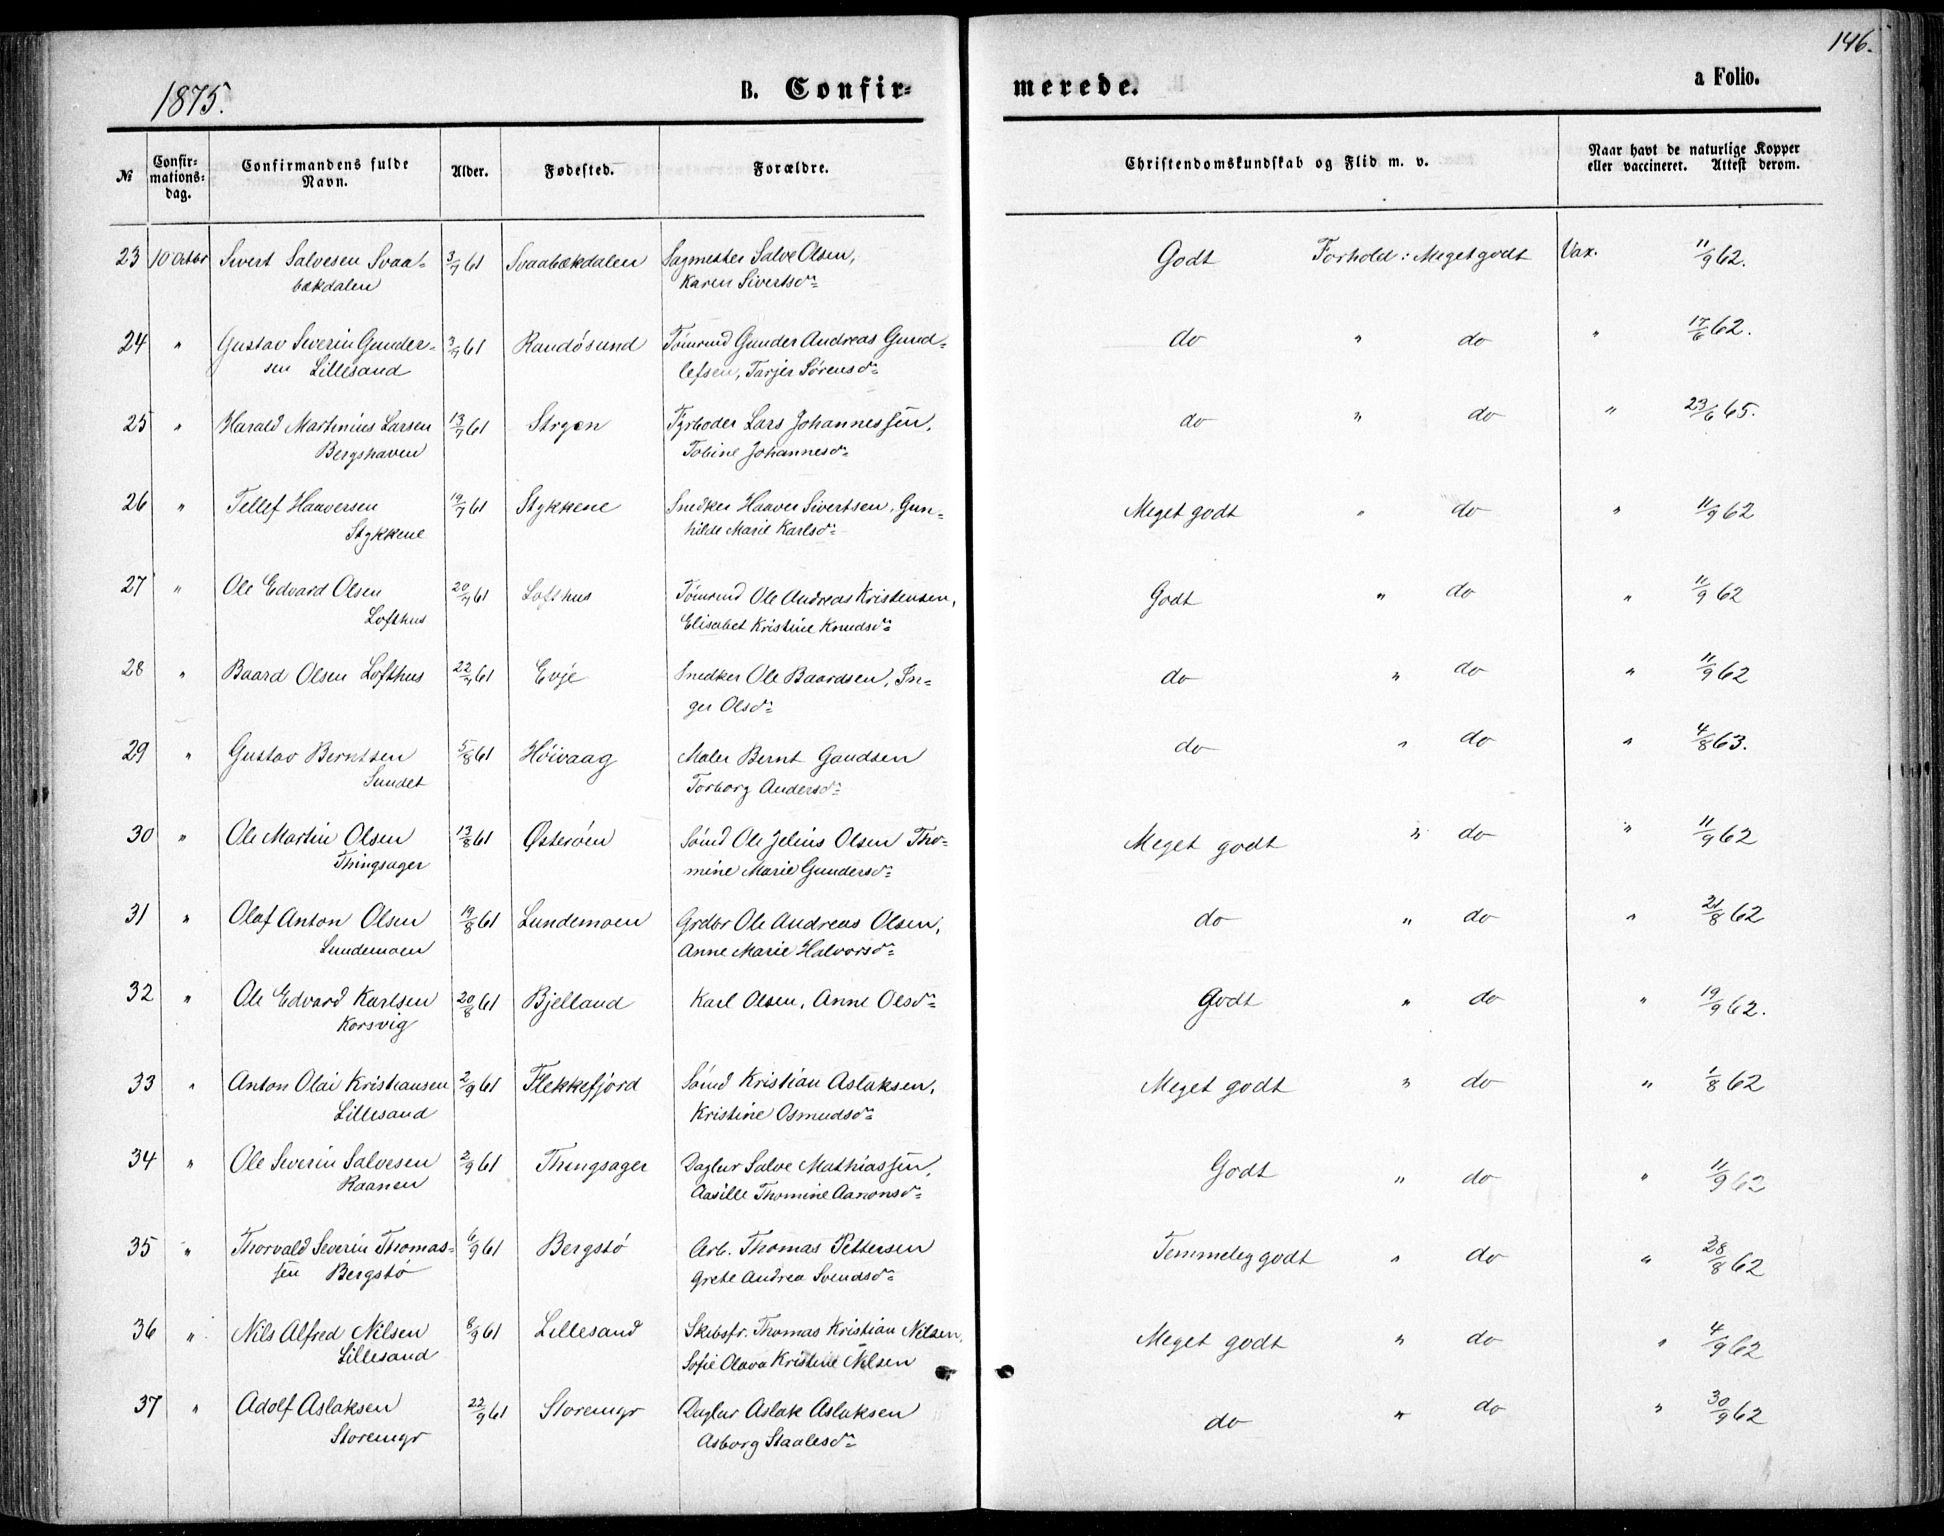 146.
1875.
B. Confir-
merede.
a Folio.
№
Confir-
mations-
dag.
Confirmandens fulde
Navn.
Alder.
Fødested.
Forældre.
Christendomskundskab og Flid m. v.
Naar havt de naturlige Kopper
eller vaccineret. Attest derom.
23 10 Octbr Sivert Salvesen Svaa- 3/7 61 Svaabækdalen Sagmester Salve Olsen, Godt Forhold: Meget godt Vax. 11/9 62.
bækdalen Karen Sivertsdr
24 " Gustav Severin Gunder- 3/7 61 Randøsund Tømmd Gunder Andreas Gund- do " do " 17/6 62.
sen Lillesand lefsen, Tarjer Sørensdr
25 " Harald Martinius Larsen 13/7 61 Strøen Fyrboder Lars Johannessen, do " do " 23/6 65.
Bergshaven Tobine Johannesdr
26 " Tellef Haaversen 19/7 61 Stykkene Snedker Haaver Sivertsen, Gun- Meget godt " do " 11/9 62
Stykkene hilde Marie Karlsdr
27 " Ole Edvard Olsen 20/7 61 Lofthus Tømmd Ole Andreas Kristensen, Godt " do " 11/9 62
Lofthus Elisabet Kristine Knudsdr
28 " Baard Olsen Lofthus 22/7 61 Evje Snedker Ole Baardsen, In- do " do " 11/9 62
ger Olsdr
29 " Gustav Berntsen 5/8 61 Høivaag Maler Bernt Gundsen do " do " 4/8 63.
Sundet Torborg Andersdr
30 " Ole Martin Olsen 13/8 61 Østerøen Sømd Ole Jelius Olsen Tho- Meget godt " do " 11/9 62
Thingsager mine Marie Gundersdr
31 " Olaf Anton Olsen 19/8 61 Lundemoen Grdbr Ole Andreas Olsen, do " do " 21/8 62
Lundemoen Anne Marie Halvorsdr
32 " Ole Edvard Karlsen 20/8 61 Bjelland Karl Olsen, Anne Olsdr Godt " do " 19/9 62.
Korsvig
33 " Anton Olai Kristiansen 2/9 61 Flekkefjord Sømd Kristian Aslaksen, Meget godt " do " 1/8 62
Lillesand Kristine Osmundsdr
34 " Ole Severin Salvesen 2/9 61 Thingsager Daglær Salve Mathiassen, Godt " do " 11/9 62
Raanen Aasille Thomine Aanonsdr
35 " Thorvald Severin Thomas- 6/9 61 Bergstø Arb. Thomas Pettersen Temmelig godt " do " 28/8 62
sen Bergstø Grete Andrea Svendsdr
36 " Nils Alfred Nilsen 8/9 61 Lillesand Skibsfr. Thomas Kristian Nilsen, Meget godt " do " 4/9 62
Lillesand Sofie Olava Kristine Nilsen
37 " Adolf Aslaksen 22/9 61 Storemyr Daglær Aslak Aslaksen do " do " 30/9 62
Storemyr Asborg Staalesdr